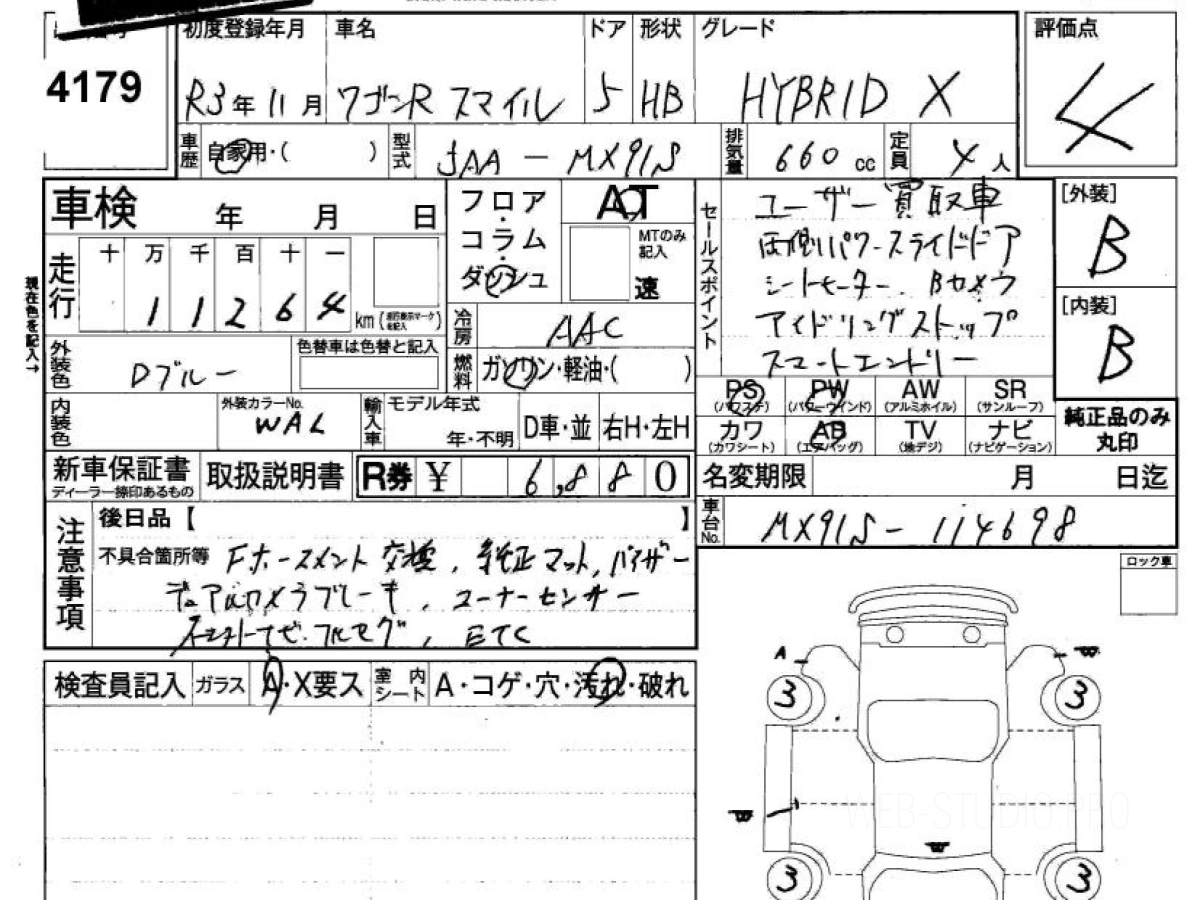 4179
初度登録年月 車名 ドア 形状 グレード 評価点
R3年11月 ワゴンR スマイル 5 HB HYBRID X 4
車歴 自家用・( ) 型式 5AA - MX91S 排気量 660 cc 定員 4人
車検 年 月 日
フロア・コラム・ダッシュ
AT
MTのみ記入
速
走行 十 万 千 百 十 一
1 1 2 6 4 km
現在色を記入→
冷房 AAC
燃料 ガソリン・軽油・( )
セールスポイント
ユーザー買取車
両側パワースライドドア
シートヒーター、Bカメラ
アイドリングストップ
スマートエントリー
[外装]
B
[内装]
B
外装色 Dブルー 色替車は色替と記入
内装色 外装カラーNo. WAL
輸入車 モデル年式 年・不明 D車・並 右H・左H
PS (パワステ) PW (パワーウインド) AW (アルミホイル) SR (サンルーフ)
カワ (カワシート) AB (エアバッグ) TV (地デジ) ナビ (ナビゲーション)
純正品のみ丸印
新車保証書 ディーラー捺印あるもの 取扱説明書 R券 ¥ 6,880
名変期限 月 日迄
車台No. MX91S - 114698
注意事項
後日品【 】
不具合箇所等 Fホースメント交換、純正マット、バイザー
デュアルカメラブレーキ、コーナーセンサー
フルセグ、ETC
ロック車
検査員記入 ガラス A・X要ス 室内シート A・コゲ・穴・汚れ・破れ
A W
3 3
W
W
3 3
WEB-STUDIO.PRO